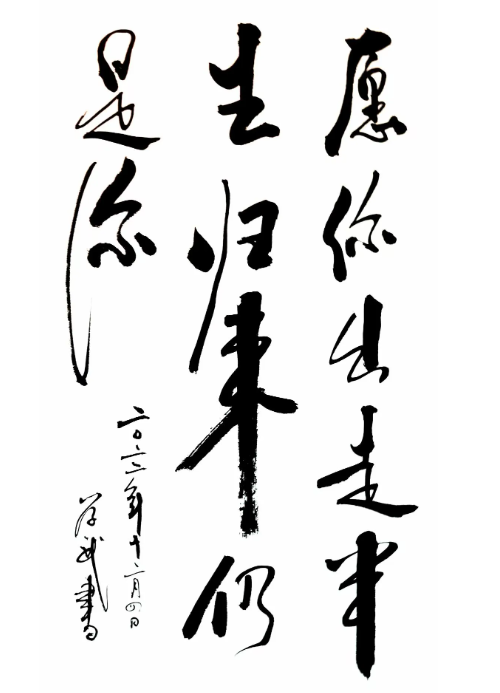 愿你出走半
生归来仍
是你
二〇二二年十二月四日
学武书